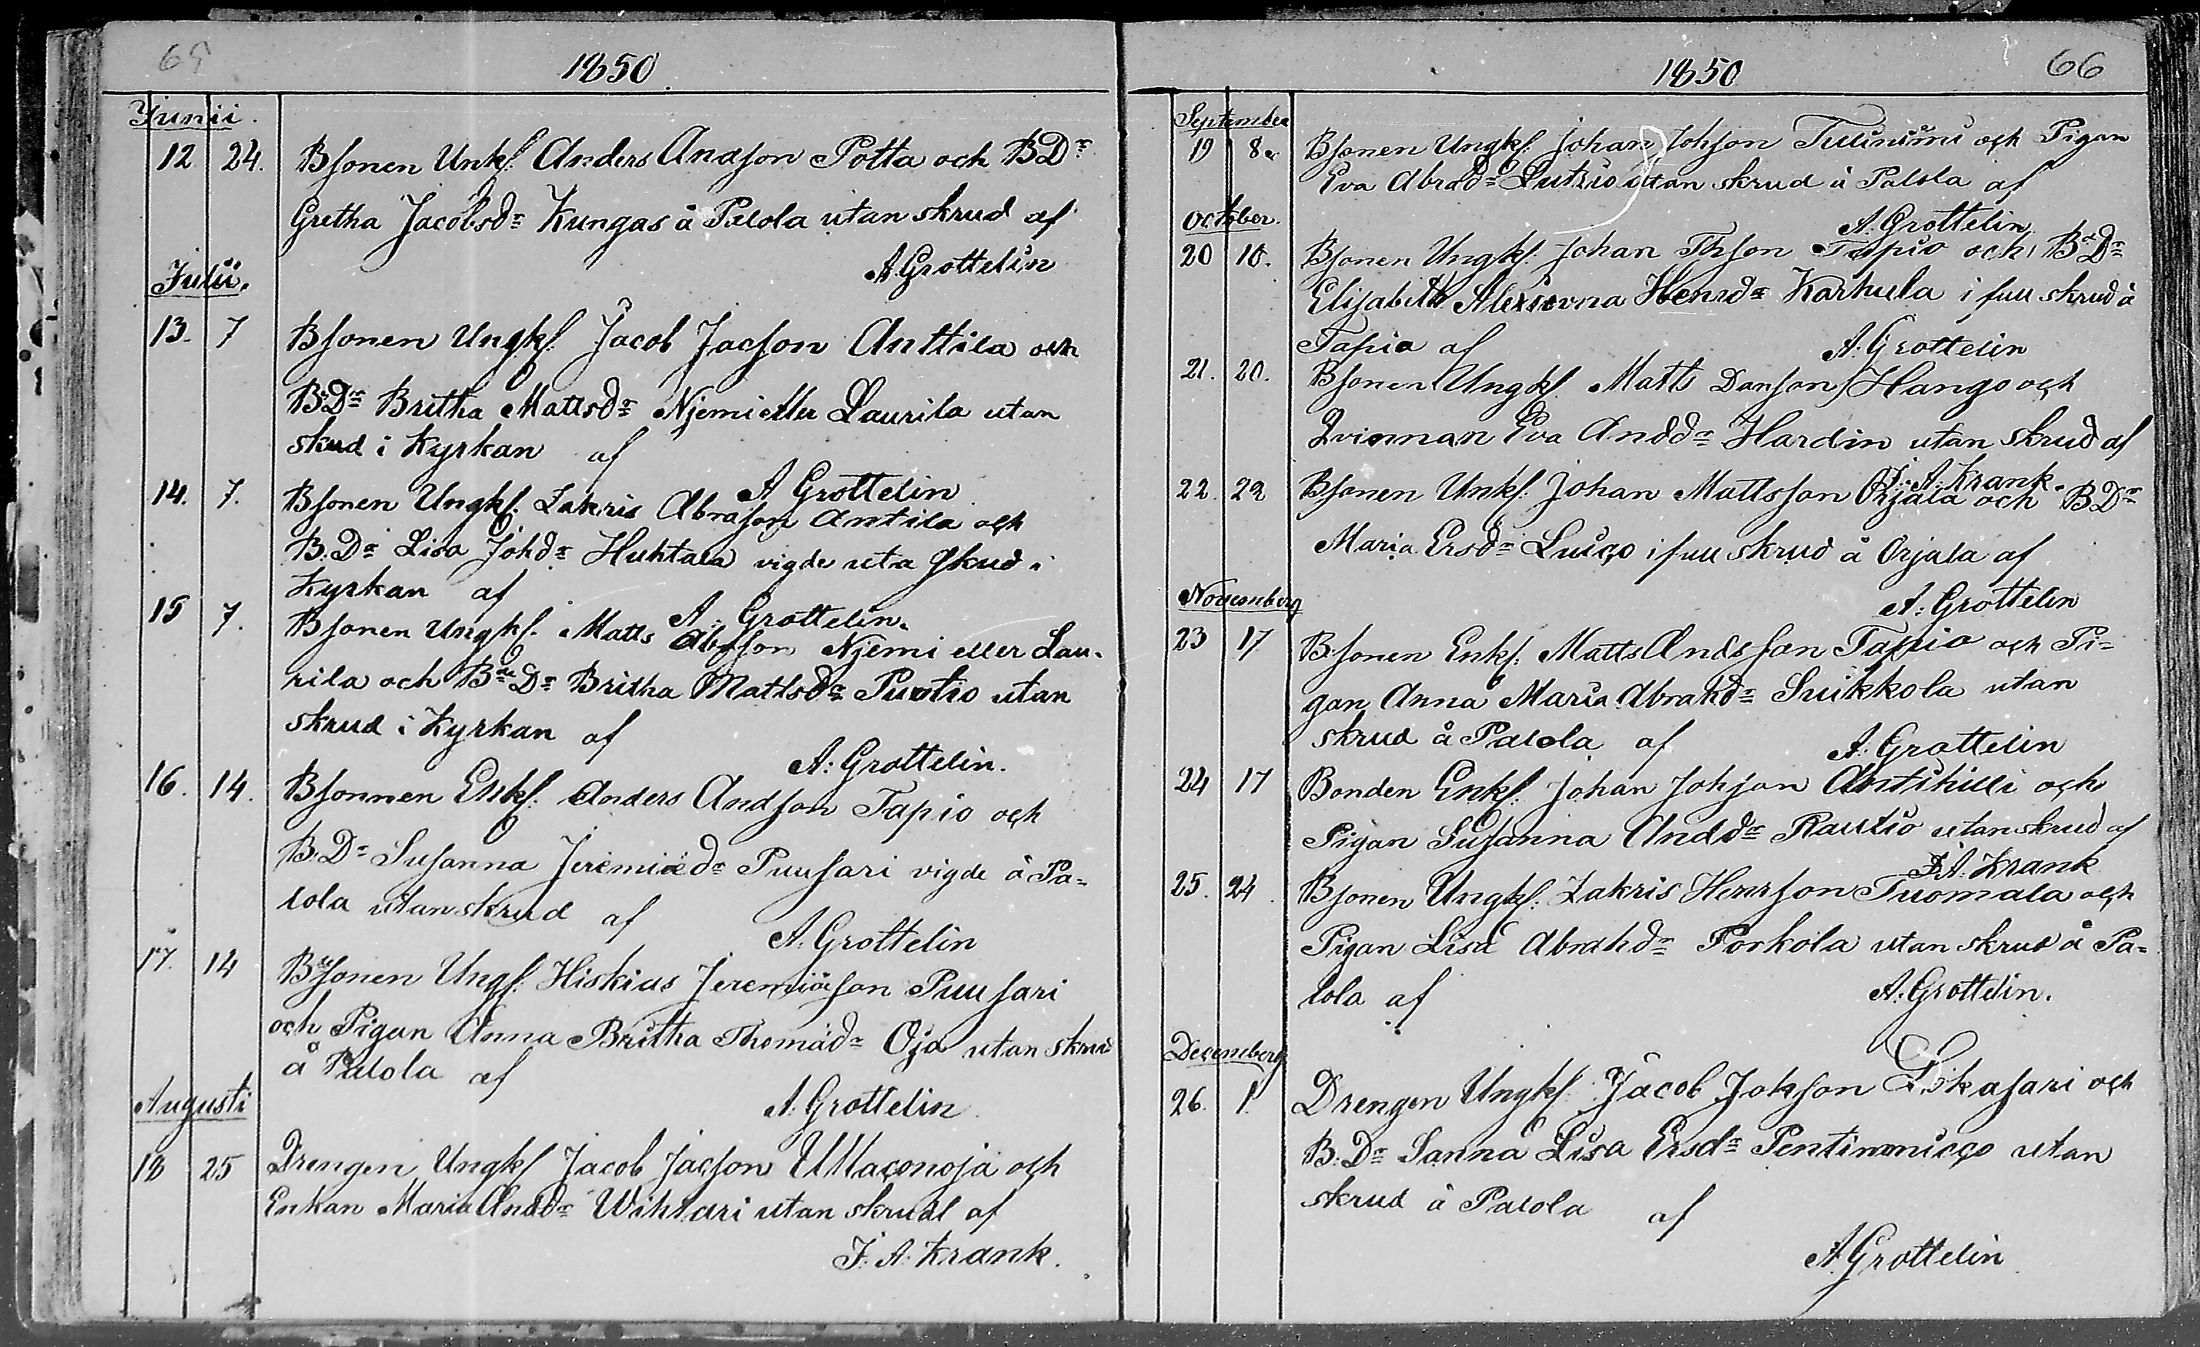 65
1850.
Junii.
12 24. Bsonen Unkf. Anders Andson Potta och BDr
Gretha Jacobsdr Kungas å Palola utan skrud af
A. Grottelin
Julii.
13. 7 Bsonen Ungkf. Jacob Jacson Anttila och
B.Dr Britha Mattsdr Njemi eller Laurila utan
skud i Kyrkan af
A Grottelin
14. 7. Bsonen Ungkf. Zakris Abrason Antila och
B.Dr Lisa Johdr Huhtala vigde uta skud i
Kyrkan af
A. Grottelin.
15 7. Bsonen Ungkf. Matts Abrson Njemi eller Lau-
rila och BneDr Britha Mattsdr Puotio utan
skrud i Kyrkan af
A: Grottelin.
16. 14. Bsonnen Enkf. Anders Andson Tapio och
B.Dr Susanna Jeremiædr Puusari vigde å Pa-
lola utan skrud af
A. Grottelin
17. 14 Bsonen Ungf. Hiskias Jeremiäson Puusari
och Pigan Anna Britha Thomädr Oja utan skrud
å Palola af
A. Grottelin.
Augusti
18 25 Drengen Ungkf Jacob Jacson Ullaconoja och
Enkan Maria Anddr Wihtari utan skrud af
F. A. Krank.
66
1850
September
19 8. Bsonen Ungkf. Johan Johson och Pigan
Eva Abradr Lutzio utan skrud å Palola af
A. Grottelin
October.
20 10. Bsonen Ungkf. Johan Thson Tapio och BdDr
Elisabeth Alexievna Henrdr Karhula i full skrud å
Tapio af
A. Grottelin
21. 20. Bsonen Ungkf. Matts Danson Hango och
Qvinnan Eva Anddr Hardin utan skrud af
F. A. Krank.
22. 22 Bsonen Unkf. Johan Mattsson Orjala och B.Dr
Maria Ersdr i full skrud å Orjala af
A: Grottelin
November
23 17 B.sonen Enkf. Matts Andsson Tapio och Pi-
gan Anna Maria Abrahdr Suikkola utan
skrud å Palola af
A. Grottelin
24 17 Bonden Enkf. Johan Johson Anttihilli och
Pigan Susanna Anddr Rautio utan skrud af
F.A. Krank
25. 24. Bsonen Ungkf. Zakris Henrson Tuomala och
Pigan Lisa Abrahdr Porkola utan skrud å Pa-
lola af
A. Grottelin.
December
26. 1. Drengen Ungkf. Jacob Johson och
B.Dr Sanna Lisa Ersdr utan
skrud å Palola af
A. Grottelin